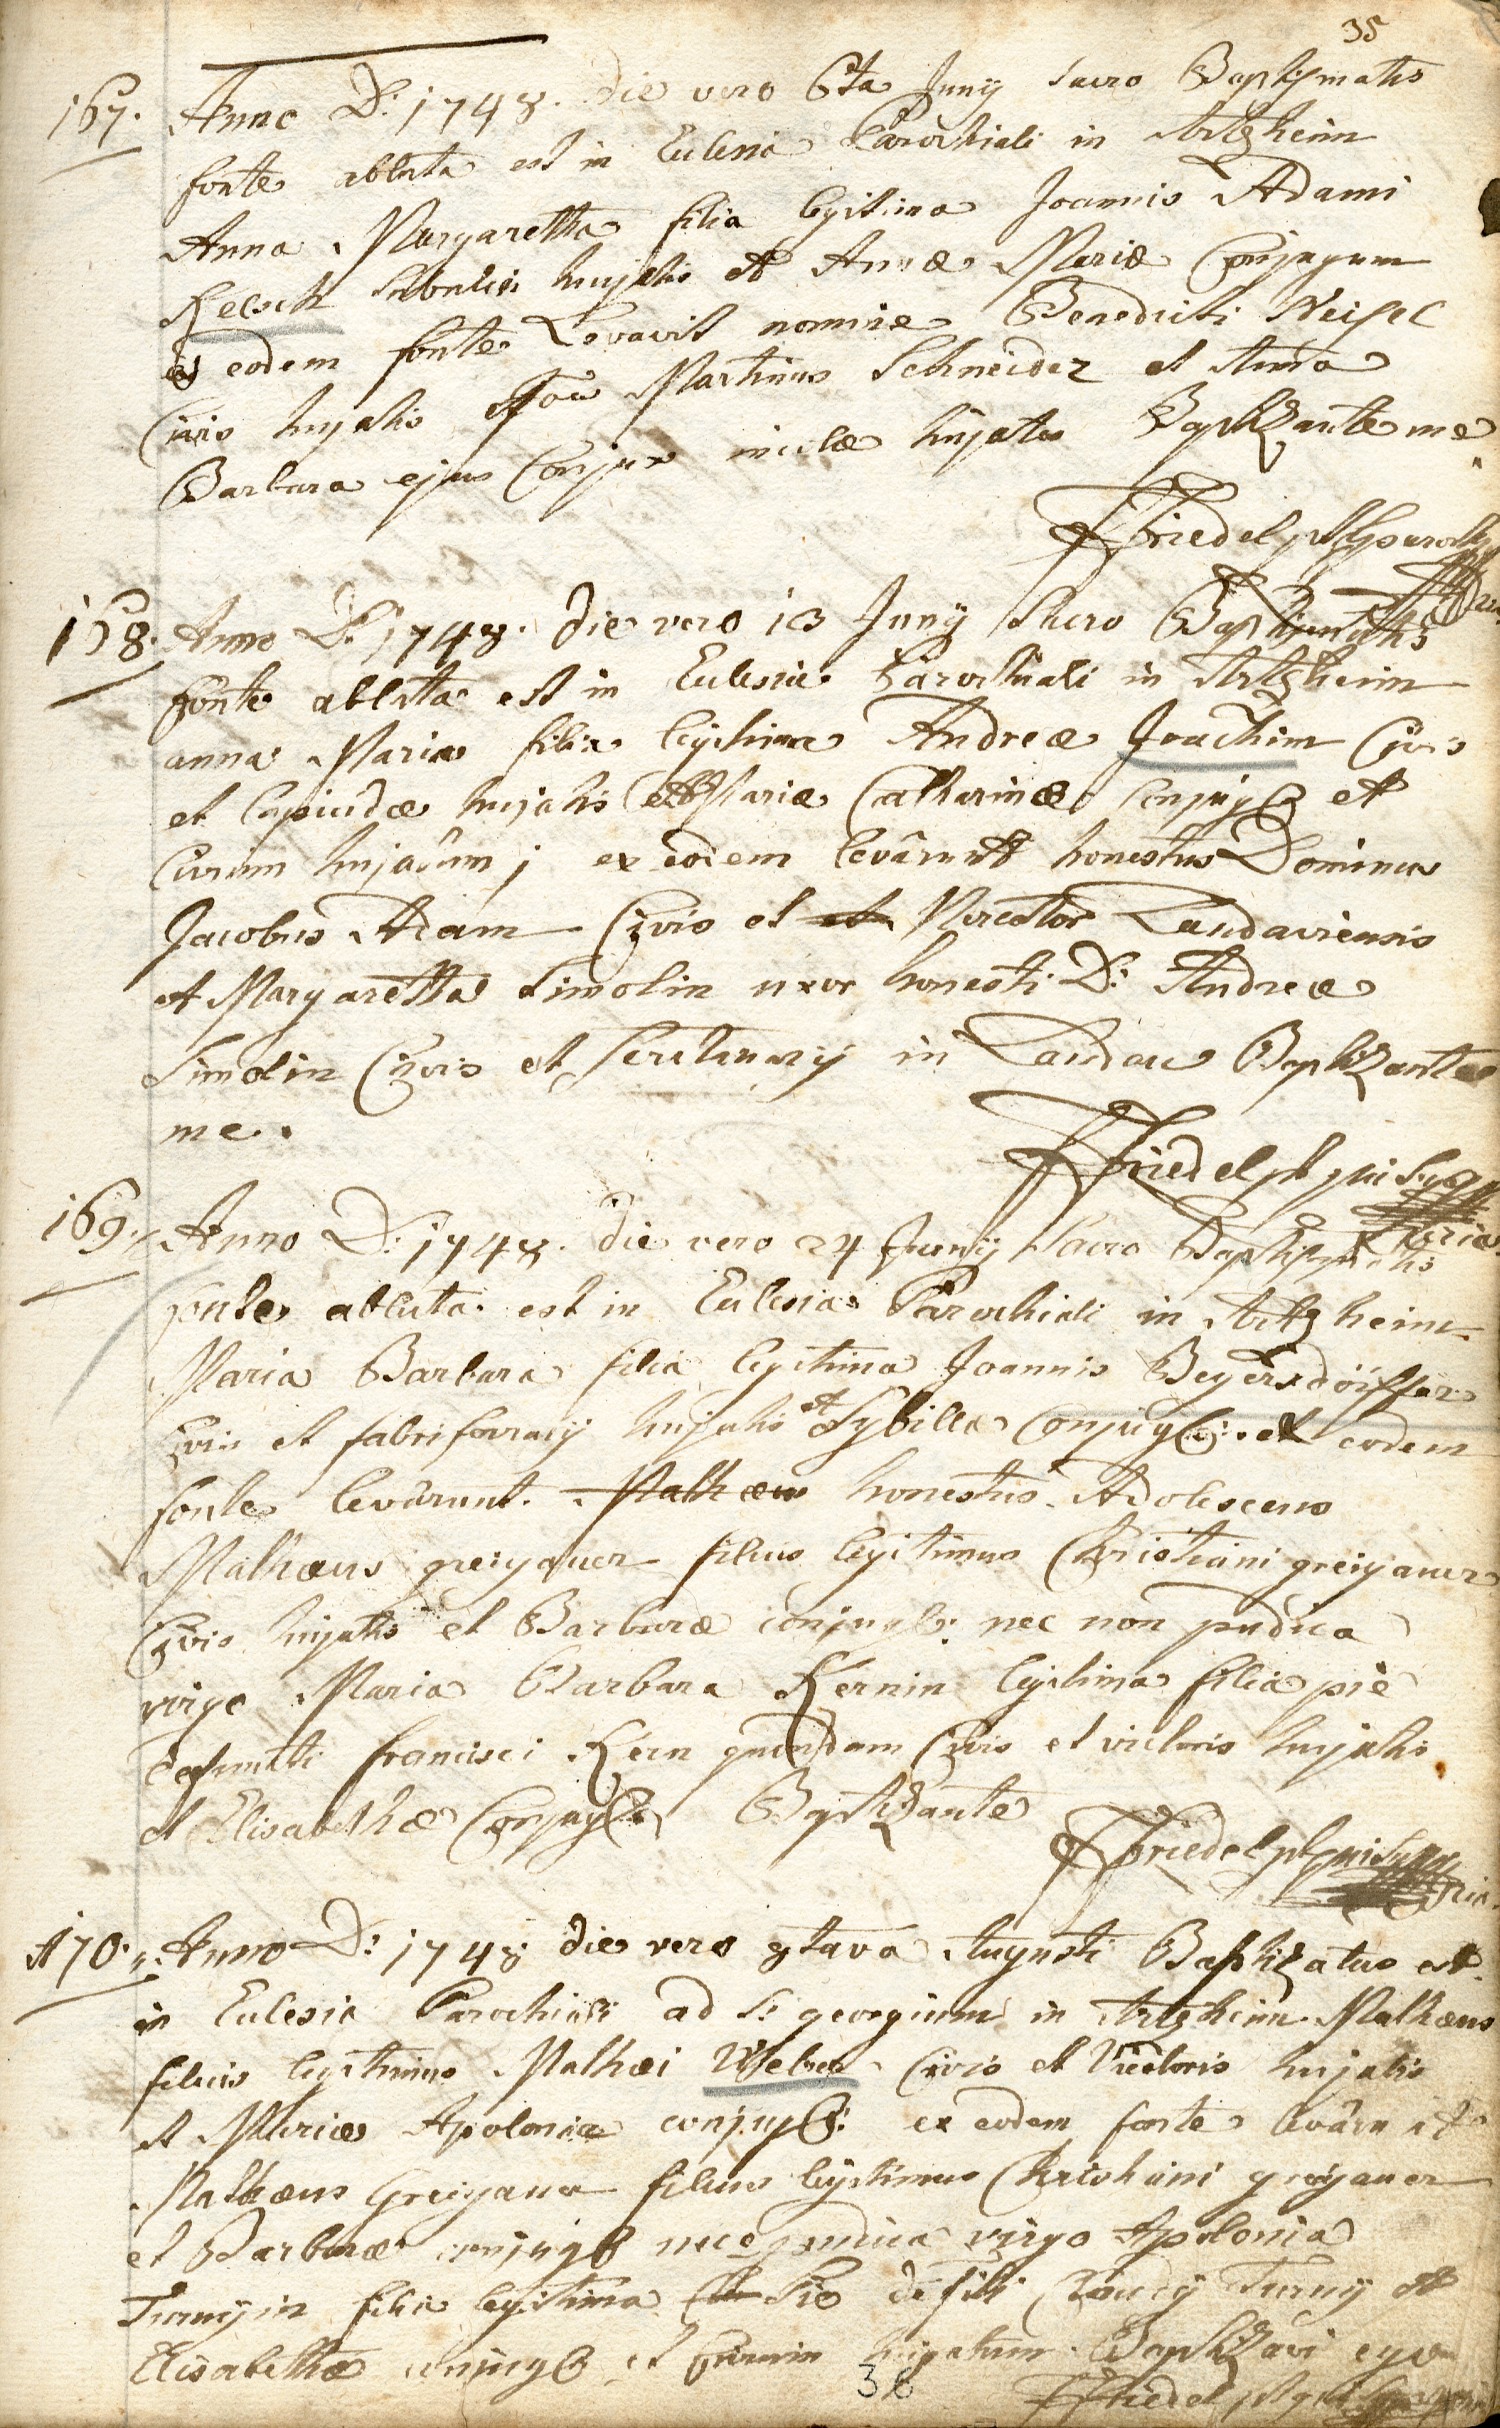 35
167. Anno D: 1748. die vero 6ta Junÿ Sacro Baptismatis
fonte abluta est in Eclesia Parochiali in Artzheim
Anna Margaretha filia legitima Joannis Adami
Kelsch Subulci hujatis et Annæ Mariæ Conjugum
eodem fonte Levavit nomine Benedicti Weisel
Civis hujatis Martinus Schneider et Anna
Barbara ejus Conjux incolæ hujates Baptizante me
Friedel
168. Anno D: 1748. die vero 13 Junÿ Sacro Baptismatis
fonte abluta est in Eclesia Parochiali in Artzheim
anna Maria filia legitima Andreæ Joachim Civis
et Lapicidæ hujatis et Mariæ Catharinæ Conjug: et
Civium hujatum; ex eodem levârunt honestus Dominus
Jacobus Adam Civis et Mercator Landaviensis
et Margaretha Simolin uxor honesti D: Andreæ
Simolin Civis et in Landau Baptizante
me.
Friedel
169. Anno D: 1748. die vero 24 Junÿ Sacro Baptismatis
fonte abluta est in Eclesia Parochiali in Artzheim
Maria Barbara filia legitima Joannis Beyersdörffer
Civis et fabri ferrarÿ hujatis et Sybillæ Conjug: ex eodem
fonte levârunt. Mathæus honestus Adolescens
Mathæus greigauer filius legitimus Christiani greigauer
Civis hujatis et Barbaræ conjug: nec non pudica
virgo Maria Barbara Kernin legitima filia pie
defuncti francisci Kern quondam Civis et victoris hujatis
et Elisabethæ Conjug: Baptizante
Friedel
170. Anno D: 1748 die vero 8tava Augusti Baptizatus est
in Eclesia Parochiali ad S: georgium in Artzheim Mathæus
filius legitimus Mathæi Weber Civis et Vietoris hujatis
et Mariæ Apoloniæ conjug: ex eodem fonte levârunt
Mathæus Greigauer filius legitimus Christiani greigauer
et Barbaræ conjug: pudica virgo Apolonia
filia legitima Pie et
Elisabethæ conjug: et Civium hujatum. Baptizavi ego
36
Friedel